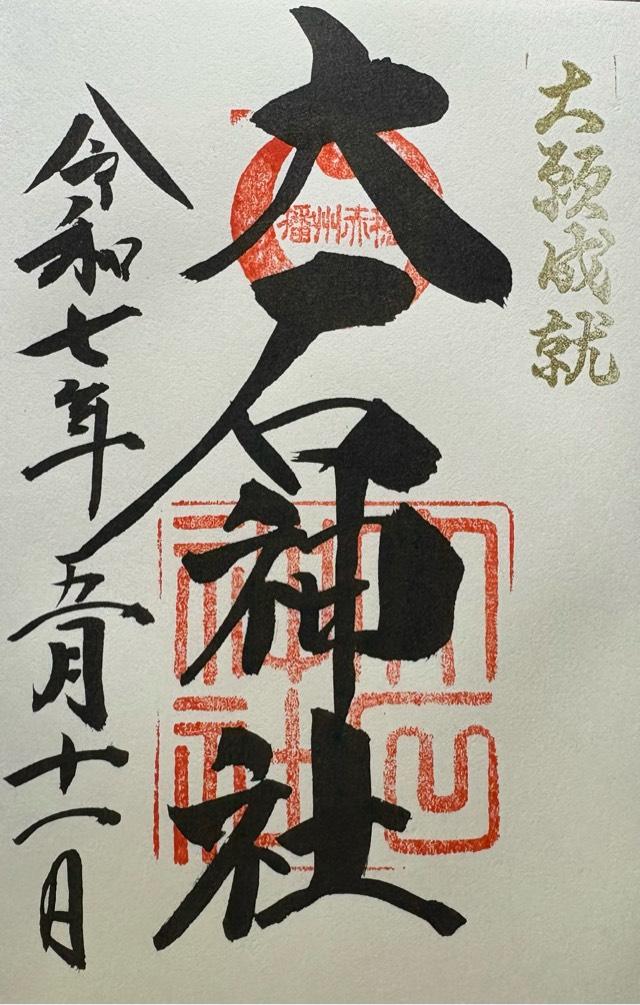 大願成就
大石神社
播州赤穂
大石神社
令和七年五月十一日